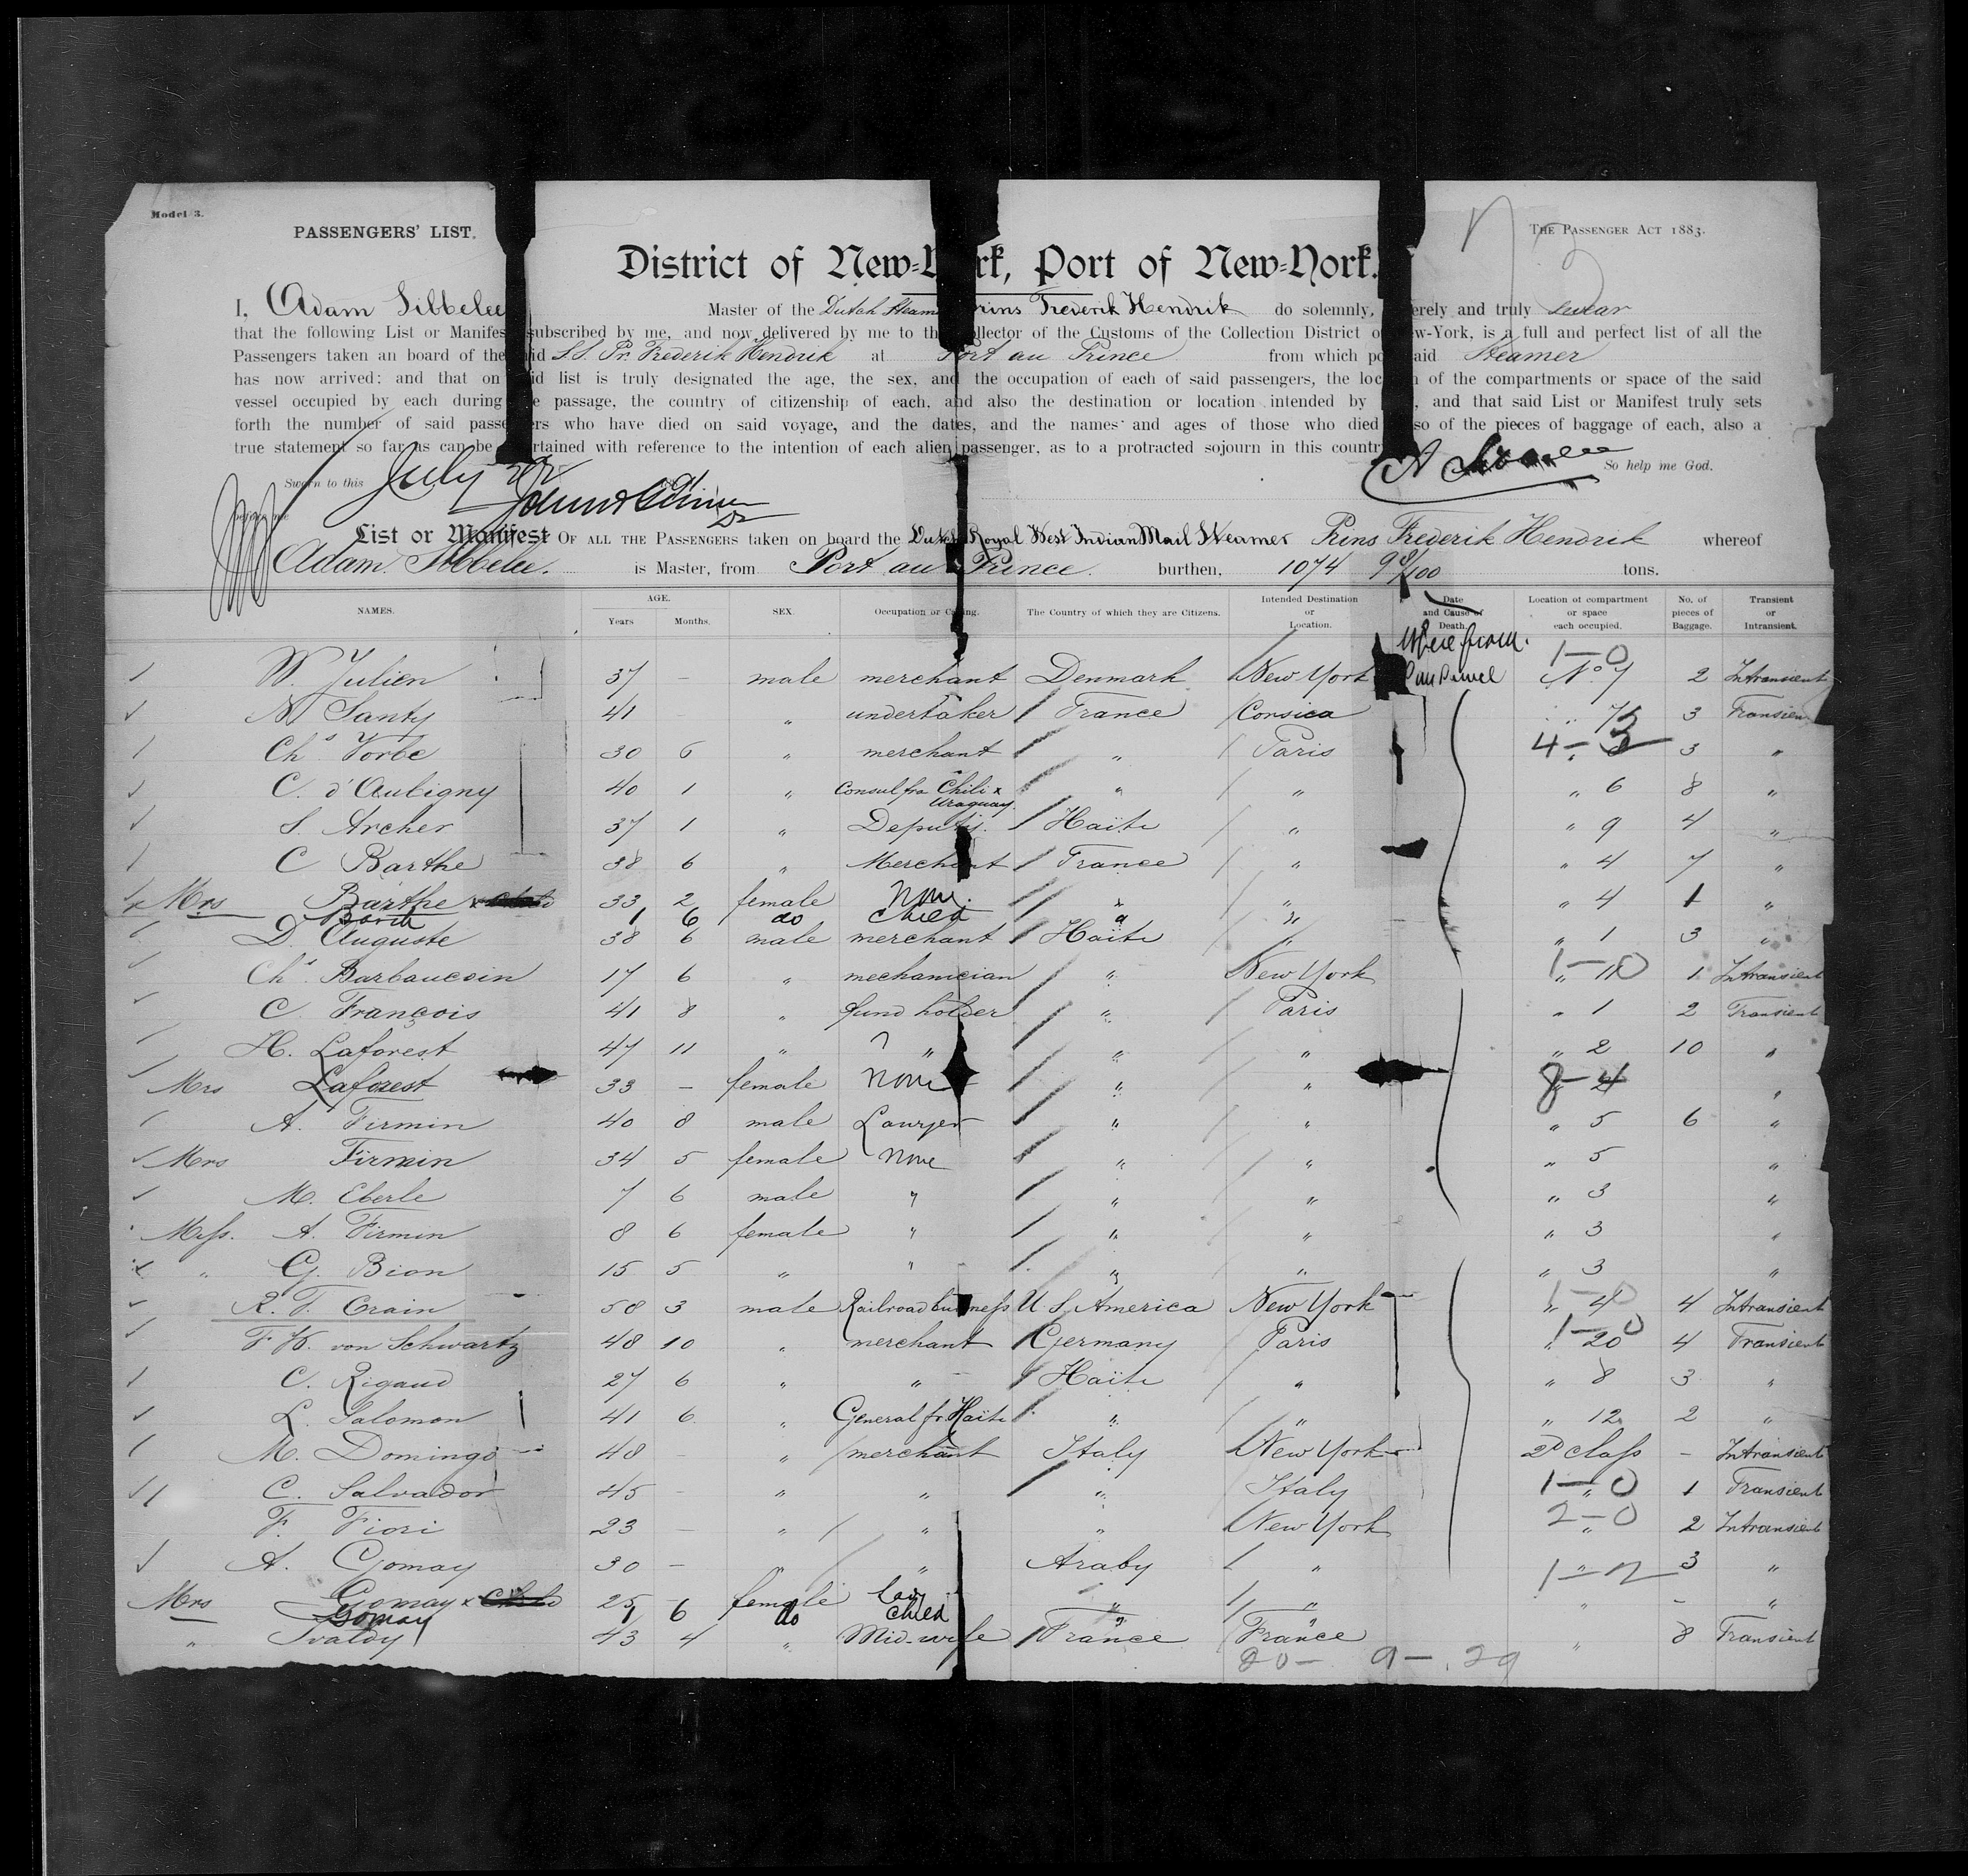 Model 3.
PASSENGERS' LIST.
THE PASSENGER ACT 1883.
District of New-York, Port of New-York.
I, Adam Sibbelee Master of the Dutch Steamer Prins Frederik Hendrik do solemnly, sincerely and truly swear
that the following List or Manifest subscribed by me, and now delivered by me to the Collector of the Customs of the Collection District of New-York, is a full and perfect list of all the
Passengers taken an board of the said S.S. Pr. Frederik Hendrik at Port au Prince from which port said Steamer
has now arrived: and that on said list is truly designated the age, the sex, and the occupation of each of said passengers, the location of the compartments or space of the said
vessel occupied by each during the passage, the country of citizenship of each, and also the destination or location intended by each, and that said List or Manifest truly sets
forth the number of said passengers who have died on said voyage, and the dates, and the names and ages of those who died also of the pieces of baggage of each, also a
true statement so far as can be ascertained with reference to the intention of each alien passenger, as to a protracted sojourn in this country
So help me God.
Sworn to this July
before me
List or Manifest OF ALL THE PASSENGERS taken on board the Dutch Royal West Indian Mail Steamer Prins Frederik Hendrik whereof
Adam Sibbelee. is Master, from Port au Prince. burthen, 1074 98/100 tons.
NAMES. AGE. Years Months. SEX. Occupation or Calling. The Country of which they are Citizens. Intended Destination or Location. Date and Cause of Death. Location of compartment or space each occupied. No. of pieces of Baggage. Transient or Intransient.
Where from. 1-0
W. Julien 37 - male merchant Denmark New York No 7 2 Intransient
N Santy 41 - " undertaker France Corsica " 3 Transient
Chs Vorbe 30 6 " merchant " Paris 3 "
C. d'Aubigny 40 1 " Consul fra Chili x Uraguay. " " " 6 8 "
S. Archer 37 1 " Deputy. Haïti " " 9 4 "
C Barthe 38 6 " Merchant France " " 4 7 "
Mrs Barthe x 33 2 female None. " " " 4 1 "
1 6 do child " "
D. Auguste 38 6 male merchant Haïti " " 1 3 "
Chs Barbaucoin 17 6 " mechanician " New York 1-0 1 Intransient
C. François 41 8 " fund holder " Paris " 1 2 Transient
H. Laforest 47 11 " " " " " 2 10 "
Mrs Laforest 33 - female None " " 8-4 "
A. Firmin 40 8 male Lawyer " " " 5 6 "
Mrs Firmin 34 5 female None " " " 5 "
M. Eberle 7 6 male " " " " 3 "
Miss. A. Firmin 8 6 female " " " " 3 "
" G. Bion 15 5 " " " " " 3 "
R. T. Crain 58 3 male Railroad business U S America New York 1-0 " 4 4 Intransient
F K. von Schwartz 48 10 " merchant Germany Paris 1-0 " 20 4 Transient
C. Rigaud 27 6 " " Haïti " " 8 3 "
L. Salomon 41 6 " General fr. Haïti " " " 12 2 "
M. Domingo 48 - " merchant Italy New York 2d class - Intransient
C. Salvador 45 - " " " Italy 1-0 " 1 Transient
F. Fiori 23 - " " " New York 2-0 " 2 Intransient
A. Gomay 30 - " " Araby " " 3 "
Mrs Gomay x Child 25 - female " " " - "
Gomay 1 6 do child " "
" Svaldy 43 4 " Mid-wife France France " 8 Transient
20- 9- 29